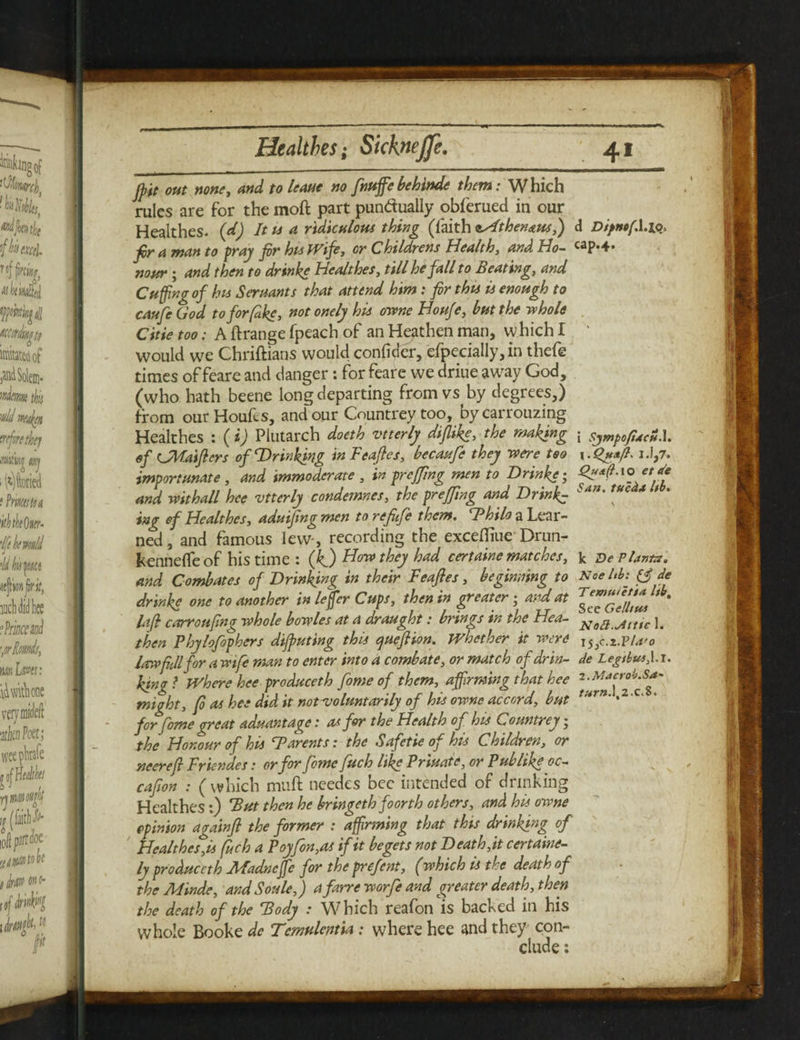 Healthes; Sicknesse. 41
ſpit out none, and to leaue no ſnuffe behinde them: Which
rules are for the moſt part punctually obſerued in our
Healthes. (d) It is a ridiculous thing (ſaith Athenæus,)
for a man to pray for his Wife, or Childrens Health, and Ho-
nour; and then to drinke Healthes, till he fall to Beating, and
Cuffing of his Seruants that attend him: for this is enough to
cauſe God to forſake, not onely his owne Houſe, but the whole
Citie too: A ſtrange ſpeach of an Heathen man, which I
would we Chriſtians would conſider, eſpecially, in theſe
times of feare and danger: for feare we driue away God,
(who hath beene long departing from vs by degrees,)
from our Houſes, and our Countrey too, by carrouzing
Healthes: (i) Plutarch doeth vtterly diſlike, the making
of Maiſters of Drinking in Feaſtes, becauſe they were too
importunate, and immoderate, in preſſing men to Drinke;
and withall hee vtterly condemnes, the preſſing and Drink-
ing of Healthes, aduiſing men to refuſe them. Philo a Lear-
ned, and famous Iew, recording the exceſſiue Drun-
kenneſſe of his time: (k) How they had certaine matches,
and Combates of Drinking in their Feaſtes, beginning to
drinke one to another in leſſer Cups, then in greater; and at
laſt carrouſing whole bowles at a draught: brings in the Hea-
then Phyloſophers diſputing this queſtion. Whether it were
lawfull for a wiſe man to enter into a combate, or match of drin-
king? Where hee produceth ſome of them, affirming that hee
might, ſo as hee did it not voluntarily of his owne accord, but
for ſome great aduantage: as for the Health of his Countrey;
the Honour of his Parents: the Safetie of his Children, or
neereſt Friendes: or for ſome ſuch like Priuate, or Publike oc-
caſion: (which muſt needes bee intended of drinking
Healthes:) But then he bringeth foorth others, and his owne
opinion againſt the former: affirming that this drinking of
Healthes, is ſuch a Poyſon, as if it begets not Death, it certaine-
ly produceth Madneſſe for the preſent, (which is the death of
the Minde, and Soule,) a farre worſe and greater death, then
the death of the Body: Which reaſon is backed in his
whole Booke de Temulentia: where hee and they con-
clude:
d Dipnoſ.l.10.
cap.4.
i Sympoſiacū.l.
1.Quæſt. 1.l,7.
Quæſt.10 et de
San. tuēda lib.
k De Planta.
Noe lib: & de
Temulētia lib.
See Gellius
Noct.Attic l.
15,c.2.Plato
de Legibus,l.1.
2.Macrob.Sa-
turn.l,2.c.8.